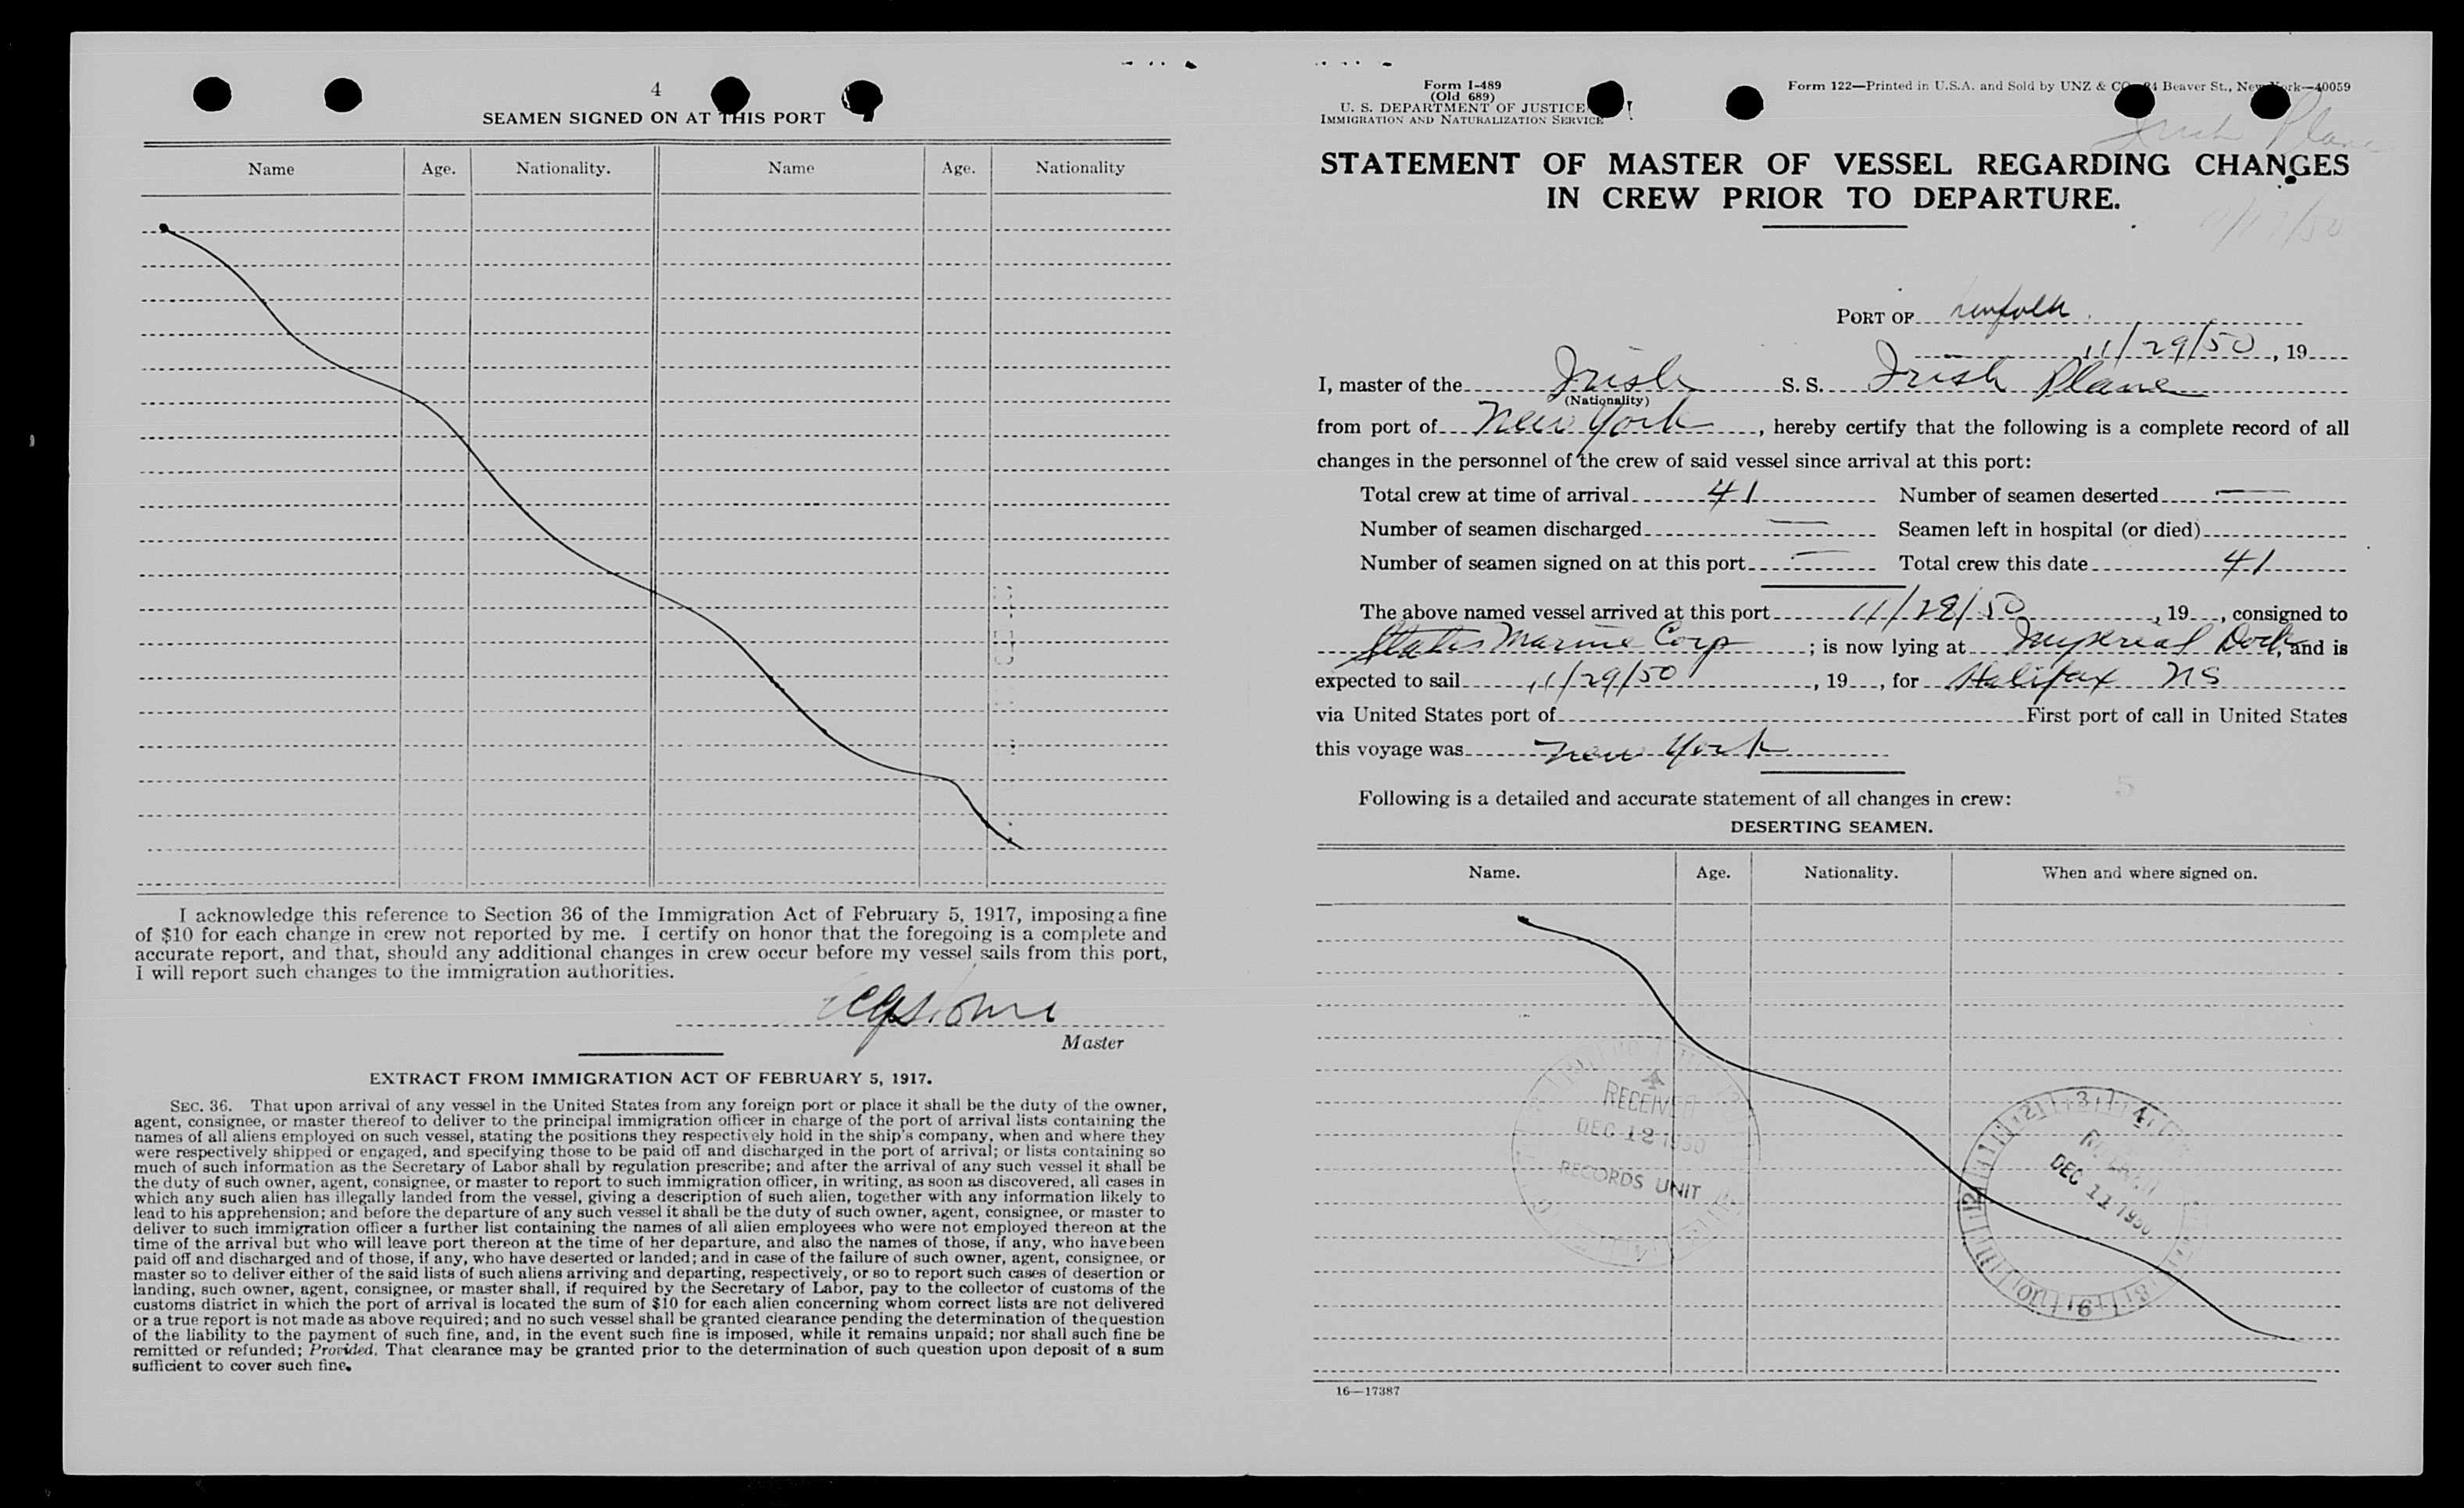 4
SEAMEN SIGNED ON AT THIS PORT
Name Age. Nationality. Name Age. Nationality
I acknowledge this reference to Section 36 of the Immigration Act of February 5, 1917, imposing a fine
of $10 for each change in crew not reported by me. I certify on honor that the foregoing is a complete and
accurate report, and that, should any additional changes in crew occur before my vessel sails from this port,
I will report such changes to the immigration authorities.
Master
EXTRACT FROM IMMIGRATION ACT OF FEBRUARY 5, 1917.
SEC. 36. That upon arrival of any vessel in the United States from any foreign port or place it shall be the duty of the owner,
agent, consignee, or master thereof to deliver to the principal immigration officer in charge of the port of arrival lists containing the
names of all aliens employed on such vessel, stating the positions they respectively hold in the ship's company, when and where they
were respectively shipped or engaged, and specifying those to be paid off and discharged in the port of arrival; or lists containing so
much of such information as the Secretary of Labor shall by regulation prescribe; and after the arrival of any such vessel it shall be
the duty of such owner, agent, consignee, or master to report to such immigration officer, in writing, as soon as discovered, all cases in
which any such alien has illegally landed from the vessel, giving a description of such alien, together with any information likely to
lead to his apprehension; and before the departure of any such vessel it shall be the duty of such owner, agent, consignee, or master to
deliver to such immigration officer a further list containing the names of all alien employees who were not employed thereon at the
time of the arrival but who will leave port thereon at the time of her departure, and also the names of those, if any, who have been
paid off and discharged and of those, if any, who have deserted or landed; and in case of the failure of such owner, agent, consignee, or
master so to deliver either of the said lists of such aliens arriving and departing, respectively, or so to report such cases of desertion or
landing, such owner, agent, consignee, or master shall, if required by the Secretary of Labor, pay to the collector of customs of the
customs district in which the port of arrival is located the sum of $10 for each alien concerning whom correct lists are not delivered
or a true report is not made as above required; and no such vessel shall be granted clearance pending the determination of the question
of the liability to the payment of such fine, and, in the event such fine is imposed, while it remains unpaid; nor shall such fine be
remitted or refunded; Provided, That clearance may be granted prior to the determination of such question upon deposit of a sum
sufficient to cover such fine.
Form I-489
(Old 689)
U. S. DEPARTMENT OF JUSTICE
IMMIGRATION AND NATURALIZATION SERVICE
Form 122—Printed in U.S.A. and Sold by UNZ & CO 24 Beaver St., New York—40059
Irish Plane
STATEMENT OF MASTER OF VESSEL REGARDING CHANGES
IN CREW PRIOR TO DEPARTURE.
PORT OF norfolk
11/29/50, 19
I, master of the Irish S. S. Irish Plane
(Nationality)
from port of New York, hereby certify that the following is a complete record of all
changes in the personnel of the crew of said vessel since arrival at this port:
Total crew at time of arrival 41 Number of seamen deserted —
Number of seamen discharged — Seamen left in hospital (or died)
Number of seamen signed on at this port — Total crew this date 41
The above named vessel arrived at this port 11/28/50, 19, consigned to
States Marine Corp; is now lying at Imperial Dock, and is
expected to sail 11/29/50, 19, for Halifax NS
via United States port of First port of call in United States
this voyage was New York
Following is a detailed and accurate statement of all changes in crew:
DESERTING SEAMEN.
Name. Age. Nationality. When and where signed on.
RECEIVED
DEC 12 1950
RECORDS UNIT
DEC 11 1950
16—17387